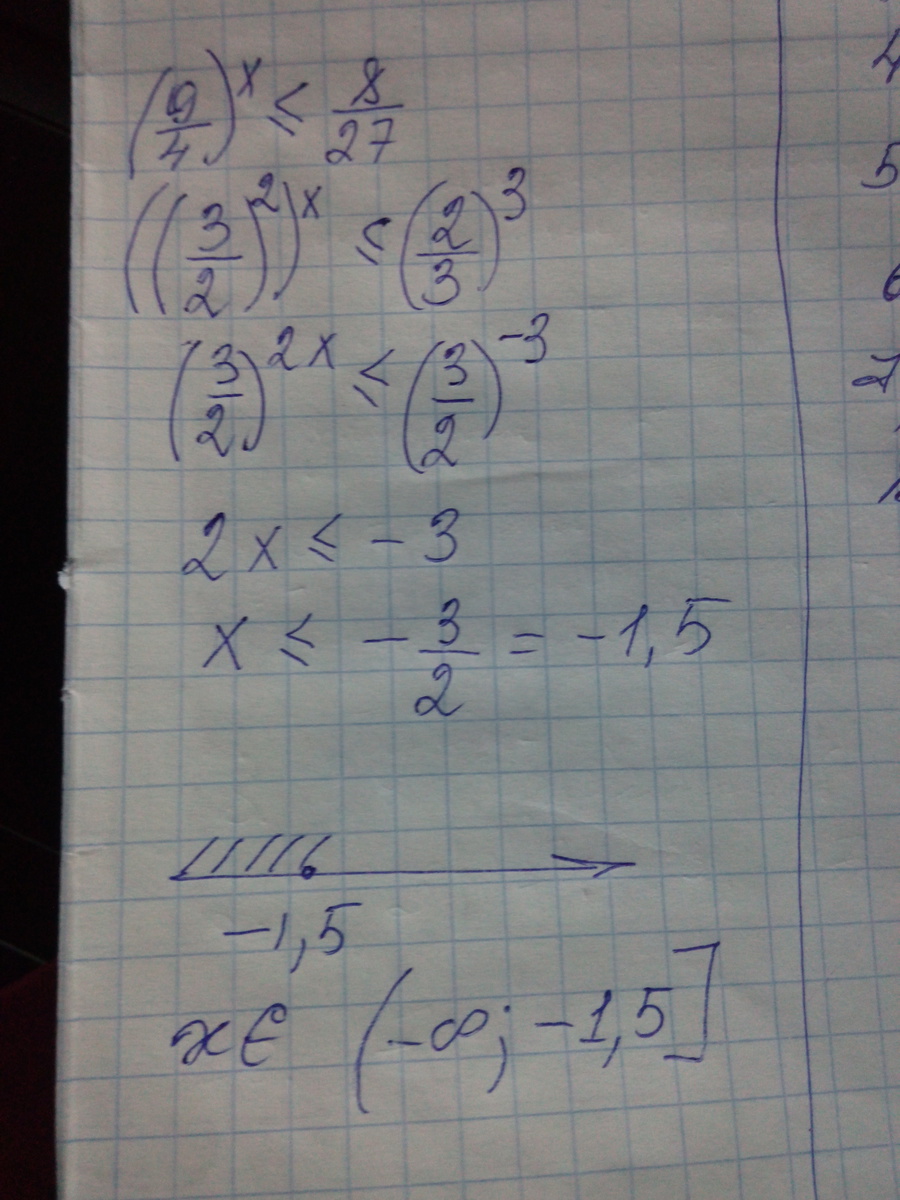 (9/4)^x ≤ 8/27
((3/2)^2)^x ≤ (2/3)^3
(3/2)^2x ≤ (3/2)^-3
2x ≤ -3
x ≤ -3/2 = -1,5
-1,5
x∈ (-∞; -1,5]
4
5
6
7